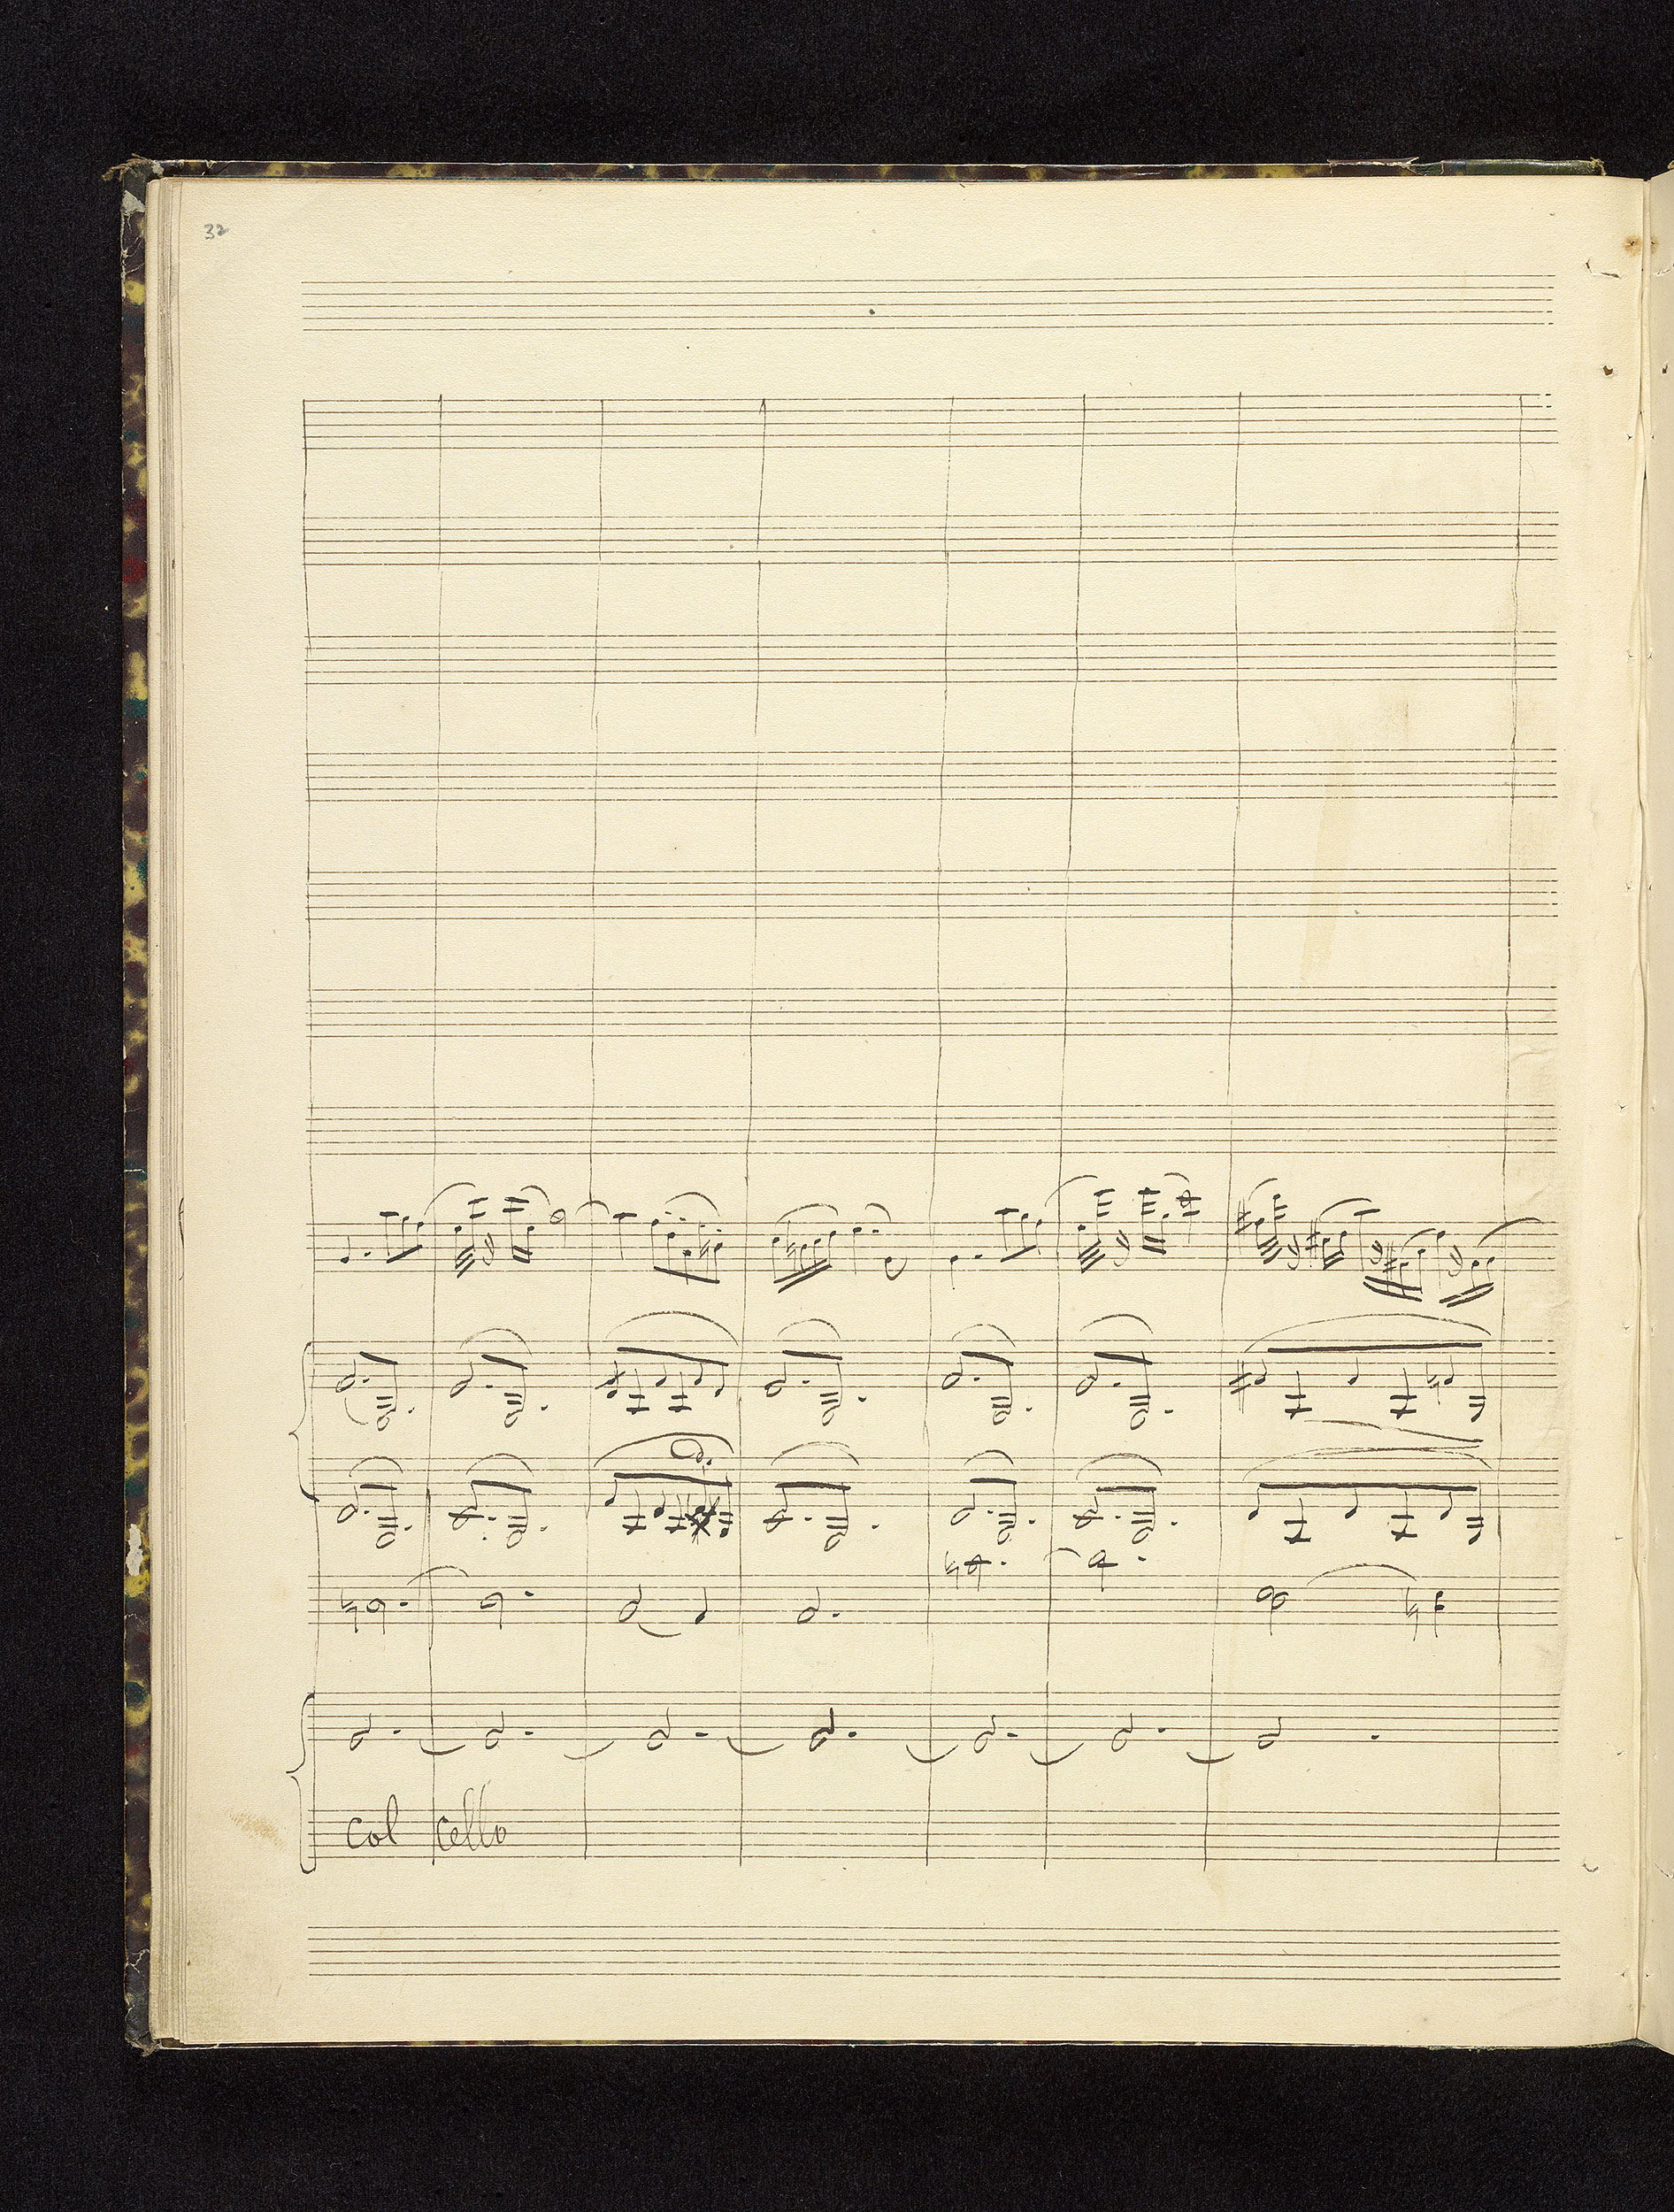 32
col cello